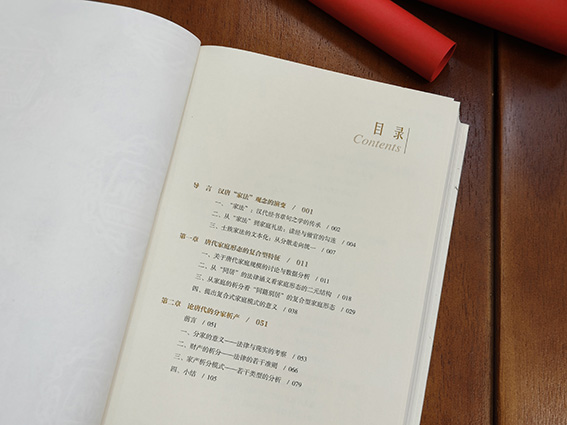 目录
Contents
导 言 汉唐“家法”观念的演变 / 001
一、“家法”：汉代经书章句之学的传承 / 002
二、从“家法”到家庭礼法：读经与做官的勾连 / 004
三、士族家法的文本化：从分散走向统一 / 007
第一章 唐代家庭形态的复合型特征 / 011
一、关于唐代家庭规模的讨论与数据分析 / 011
二、从“同居”的法律涵义看家庭形态的二元结构 / 018
三、从家庭的析分看“同籍别居”的复合型家庭形态 / 029
四、提出复合式家庭模式的意义 / 038
第二章 论唐代的分家析产 / 051
前言 / 051
一、分家的意义——法律与现实的考察 / 053
二、财产的析分——法律的若干准则 / 066
三、家产析分模式——若干类型的分析 / 079
四、小结 / 105